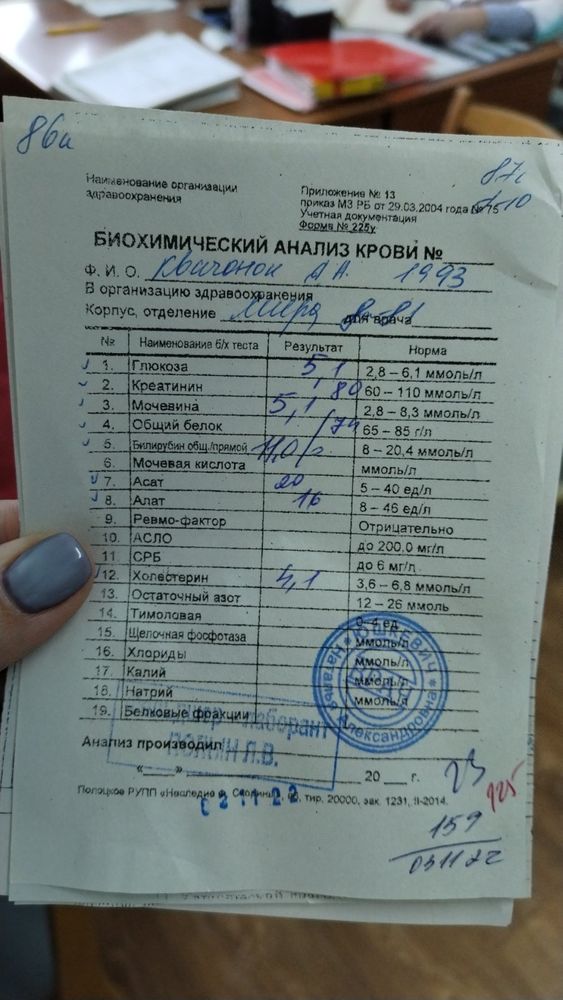 86а
87с
Наименование организации
здравоохранения
Приложение № 13
приказ МЗ РБ от 29.03.2004 года № 75
Учетная документация
Форма № 225у
БИОХИМИЧЕСКИЙ АНАЛИЗ КРОВИ №
Ф. И. О. А.А. 1993
В организацию здравоохранения
Корпус, отделение Мира для врача
№ Наименование б/х теста Результат Норма
1. Глюкоза 5,1 2,8 – 6,1 ммоль/л
2. Креатинин 80 60 – 110 ммоль/л
3. Мочевина 5,1 2,8 – 8,3 ммоль/л
4. Общий белок 74 65 – 85 г/л
5. Билирубин общ./прямой 11,0 8 – 20,4 ммоль/л
6. Мочевая кислота ммоль/л
7. Асат 20 5 – 40 ед/л
8. Алат 16 8 – 46 ед/л
9. Ревмо-фактор Отрицательно
10. АСЛО до 200,0 мг/л
11. СРБ до 6 мг/л
12. Холестерин 4,1 3,6 – 6,8 ммоль/л
13. Остаточный азот 12 – 26 ммоль
14. Тимоловая 0-4 ед
15. Щелочная фосфотаза ммоль/л
16. Хлориды ммоль/л
17. Калий ммоль/л
18. Натрий ммоль/л
19. Белковые фракции
ЮШКЕВИЧ Наталья Александровна
лаборант
Анализ производил
Л.В.
«___» 20 __ г.
23
125
Полоцкое РУПП «Наследие Ф. Скорины», тир. 20000, зак. 1231, II-2014.
03 11 22
159
031122